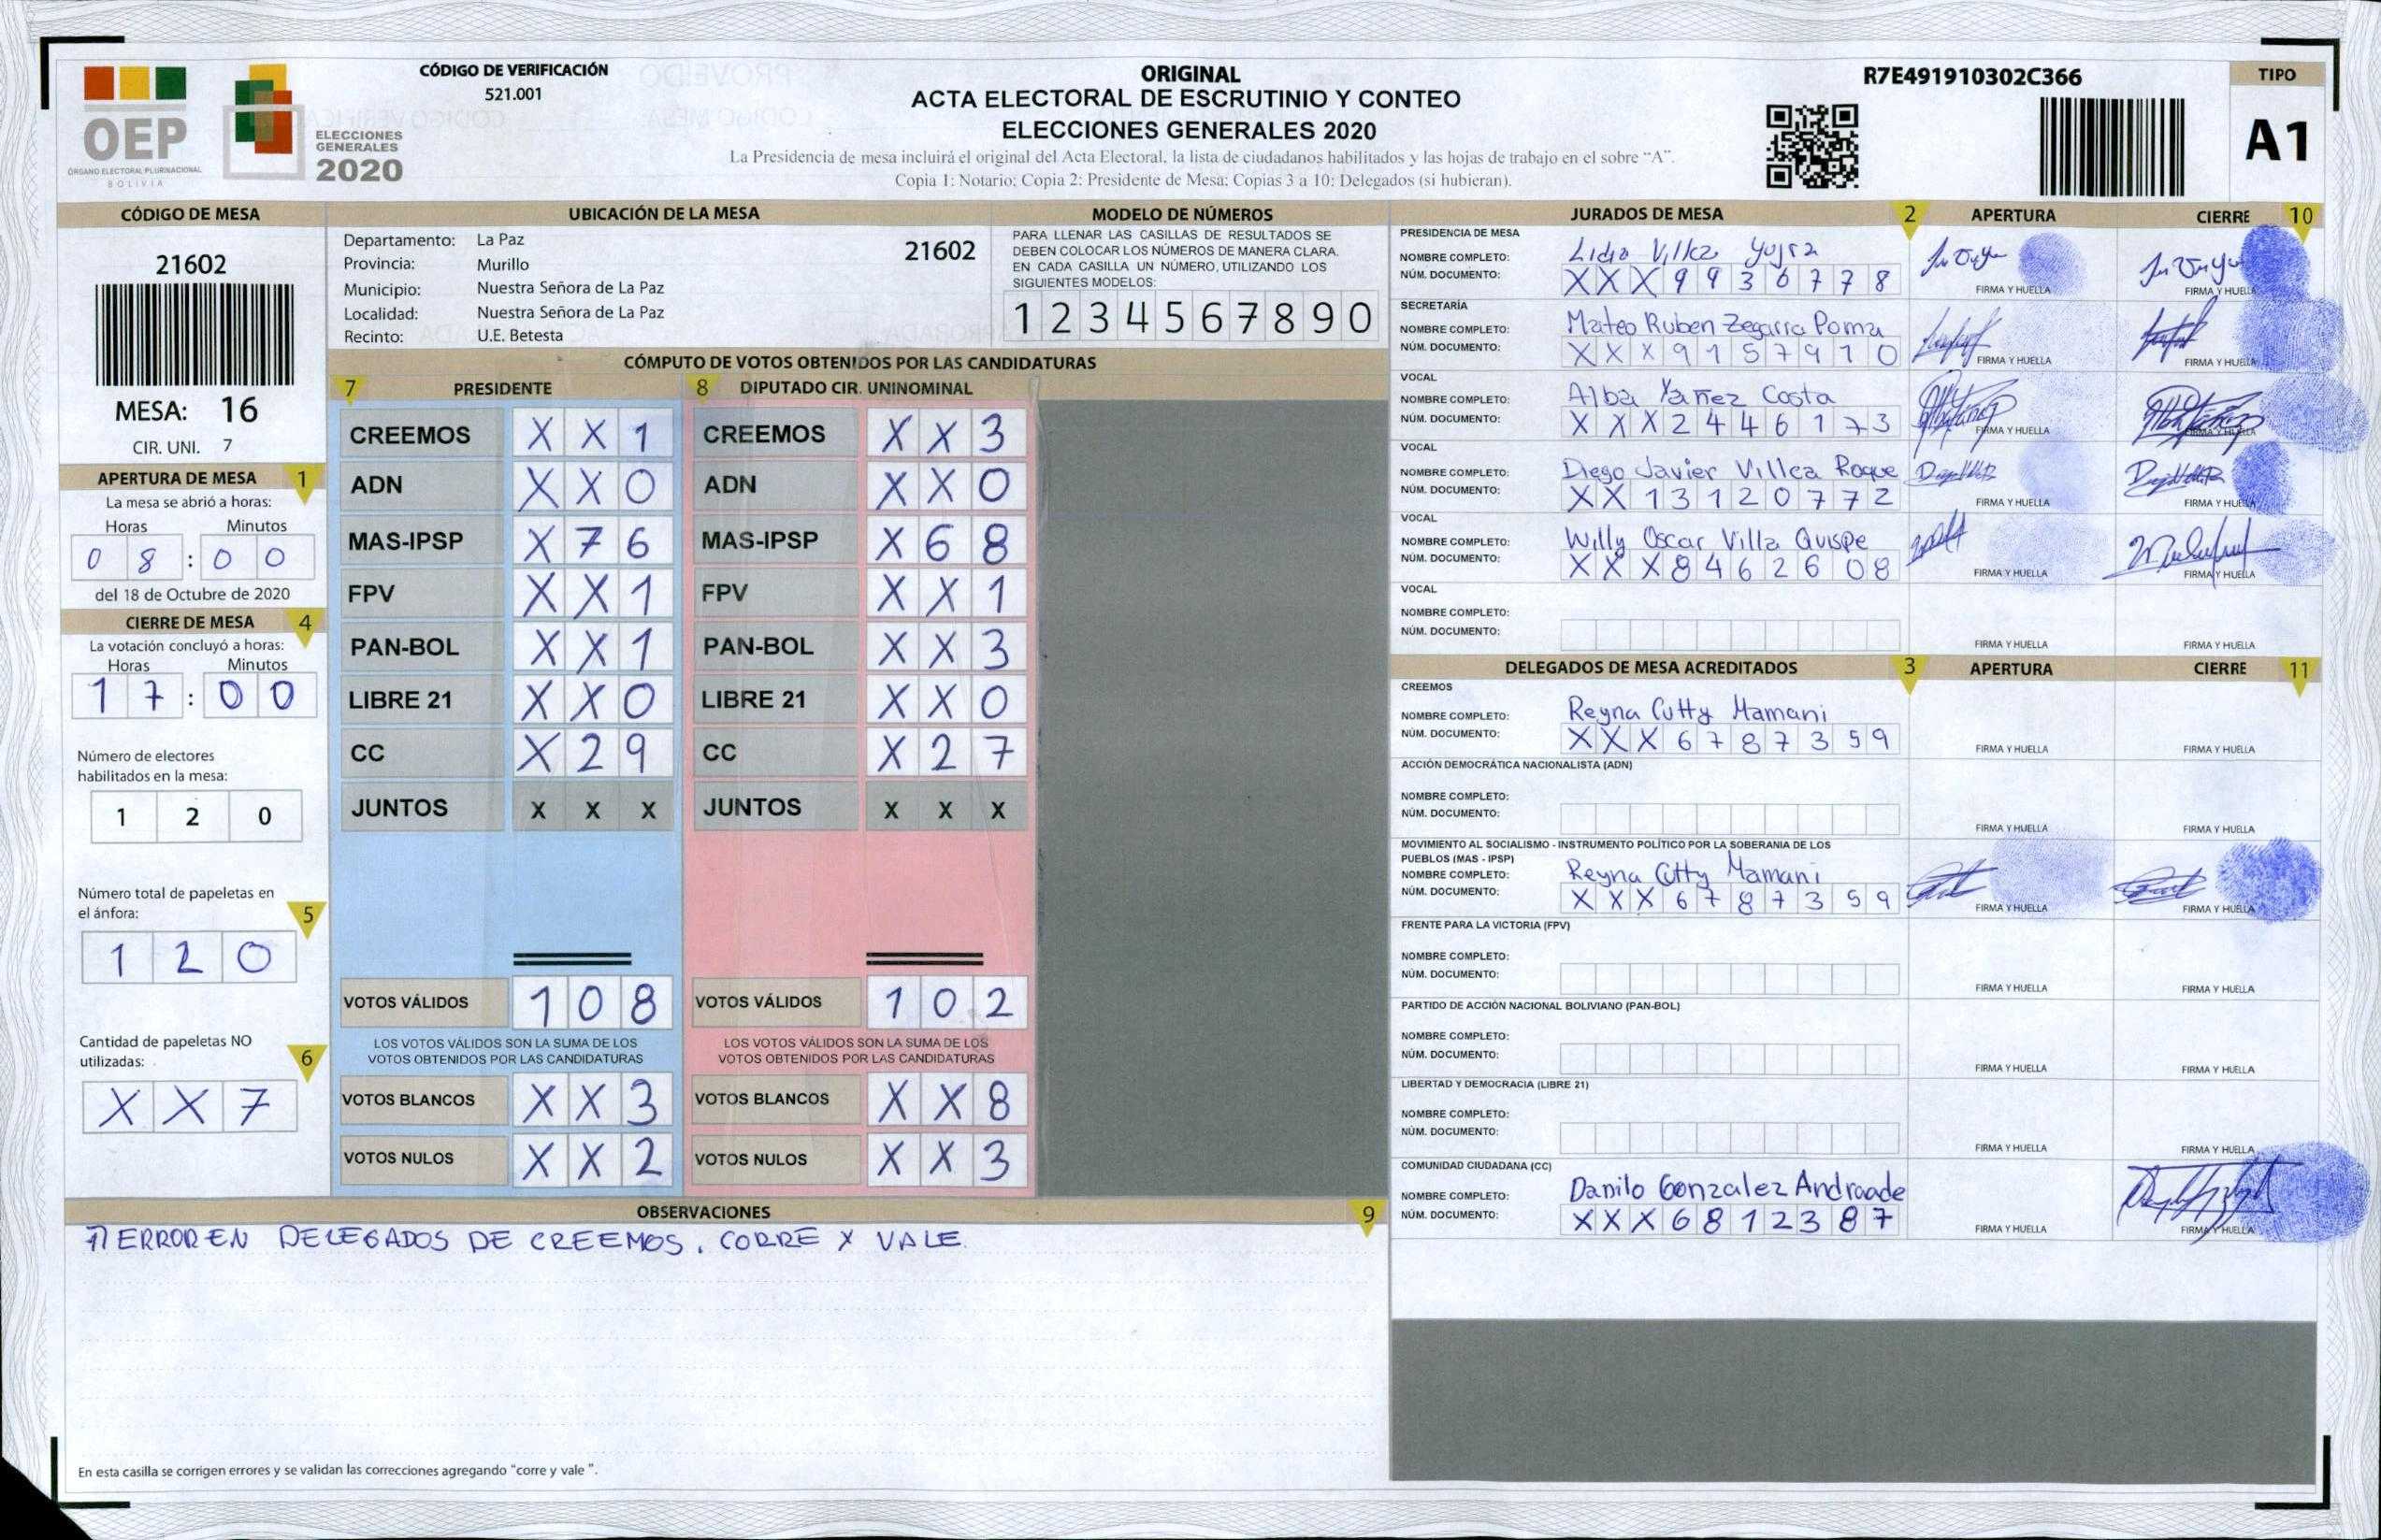 OEP
ÓRGANO ELECTORAL PLURINACIONAL
BOLIVIA
ELECCIONES
GENERALES
2020
CÓDIGO DE VERIFICACIÓN
521.001
ORIGINAL
ACTA ELECTORAL DE ESCRUTINIO Y CONTEO
ELECCIONES GENERALES 2020
La Presidencia de mesa incluirá el original del Acta Electoral, la lista de ciudadanos habilitados y las hojas de trabajo en el sobre "A".
Copia 1: Notario; Copia 2: Presidente de Mesa; Copias 3 a 10: Delegados (si hubieran).
R7E491910302C366
TIPO
A1
CÓDIGO DE MESA
21602
MESA: 16
CIR. UNI. 7
APERTURA DE MESA 1
La mesa se abrió a horas:
Horas Minutos
0 8 : 0 0
del 18 de Octubre de 2020
CIERRE DE MESA 4
La votación concluyó a horas:
Horas Minutos
1 7 : 0 0
Número de electores
habilitados en la mesa:
1 2 0
Número total de papeletas en
el ánfora: 5
1 2 0
Cantidad de papeletas NO
utilizadas: 6
X X 7
UBICACIÓN DE LA MESA
Departamento: La Paz 21602
Provincia: Murillo
Municipio: Nuestra Señora de La Paz
Localidad: Nuestra Señora de La Paz
Recinto: U.E. Betesta
MODELO DE NÚMEROS
PARA LLENAR LAS CASILLAS DE RESULTADOS SE
DEBEN COLOCAR LOS NÚMEROS DE MANERA CLARA.
EN CADA CASILLA UN NÚMERO, UTILIZANDO LOS
SIGUIENTES MODELOS:
1 2 3 4 5 6 7 8 9 0
CÓMPUTO DE VOTOS OBTENIDOS POR LAS CANDIDATURAS
7 PRESIDENTE
CREEMOS X X 1
ADN X X 0
MAS-IPSP X 7 6
FPV X X 1
PAN-BOL X X 1
LIBRE 21 X X 0
CC X 2 9
JUNTOS X X X
VOTOS VÁLIDOS 1 0 8
LOS VOTOS VÁLIDOS SON LA SUMA DE LOS
VOTOS OBTENIDOS POR LAS CANDIDATURAS
VOTOS BLANCOS X X 3
VOTOS NULOS X X 2
8 DIPUTADO CIR. UNINOMINAL
CREEMOS X X 3
ADN X X 0
MAS-IPSP X 6 8
FPV X X 1
PAN-BOL X X 3
LIBRE 21 X X 0
CC X 2 7
JUNTOS X X X
VOTOS VÁLIDOS 1 0 2
LOS VOTOS VÁLIDOS SON LA SUMA DE LOS
VOTOS OBTENIDOS POR LAS CANDIDATURAS
VOTOS BLANCOS X X 8
VOTOS NULOS X X 3
OBSERVACIONES 9
ERROR EN DELEGADOS DE CREEMOS. CORRE Y VALE.
En esta casilla se corrigen errores y se validan las correcciones agregando "corre y vale ".
JURADOS DE MESA 2 APERTURA CIERRE 10
PRESIDENCIA DE MESA
NOMBRE COMPLETO: Lidia Villca Yujra
NÚM. DOCUMENTO: X X X 9 9 3 6 7 7 8
FIRMA Y HUELLA FIRMA Y HUELLA
SECRETARÍA
NOMBRE COMPLETO: Mateo Ruben Zegarra Poma
NÚM. DOCUMENTO: X X X 9 1 5 7 9 1 0
FIRMA Y HUELLA FIRMA Y HUELLA
VOCAL
NOMBRE COMPLETO: Alba Yañez Costa
NÚM. DOCUMENTO: X X X 2 4 4 6 1 7 3
FIRMA Y HUELLA FIRMA Y HUELLA
VOCAL
NOMBRE COMPLETO: Diego Javier Villca Roque
NÚM. DOCUMENTO: X X 1 3 1 2 0 7 7 2
FIRMA Y HUELLA FIRMA Y HUELLA
VOCAL
NOMBRE COMPLETO: Willy Oscar Villa Quispe
NÚM. DOCUMENTO: X X X 8 4 6 2 6 0 8
FIRMA Y HUELLA FIRMA Y HUELLA
VOCAL
NOMBRE COMPLETO:
NÚM. DOCUMENTO:
FIRMA Y HUELLA FIRMA Y HUELLA
DELEGADOS DE MESA ACREDITADOS 3 APERTURA CIERRE 11
CREEMOS
NOMBRE COMPLETO: Reyna Cutty Mamani
NÚM. DOCUMENTO: X X X 6 7 8 7 3 5 9
FIRMA Y HUELLA FIRMA Y HUELLA
ACCIÓN DEMOCRÁTICA NACIONALISTA (ADN)
NOMBRE COMPLETO:
NÚM. DOCUMENTO:
FIRMA Y HUELLA FIRMA Y HUELLA
MOVIMIENTO AL SOCIALISMO - INSTRUMENTO POLÍTICO POR LA SOBERANIA DE LOS
PUEBLOS (MAS - IPSP)
NOMBRE COMPLETO: Reyna Cutty Mamani
NÚM. DOCUMENTO: X X X 6 7 8 7 3 5 9
FIRMA Y HUELLA FIRMA Y HUELLA
FRENTE PARA LA VICTORIA (FPV)
NOMBRE COMPLETO:
NÚM. DOCUMENTO:
FIRMA Y HUELLA FIRMA Y HUELLA
PARTIDO DE ACCIÓN NACIONAL BOLIVIANO (PAN-BOL)
NOMBRE COMPLETO:
NÚM. DOCUMENTO:
FIRMA Y HUELLA FIRMA Y HUELLA
LIBERTAD Y DEMOCRACIA (LIBRE 21)
NOMBRE COMPLETO:
NÚM. DOCUMENTO:
FIRMA Y HUELLA FIRMA Y HUELLA
COMUNIDAD CIUDADANA (CC)
NOMBRE COMPLETO: Danilo Gonzalez Andraade
NÚM. DOCUMENTO: X X X 6 8 1 2 3 8 7
FIRMA Y HUELLA FIRMA Y HUELLA